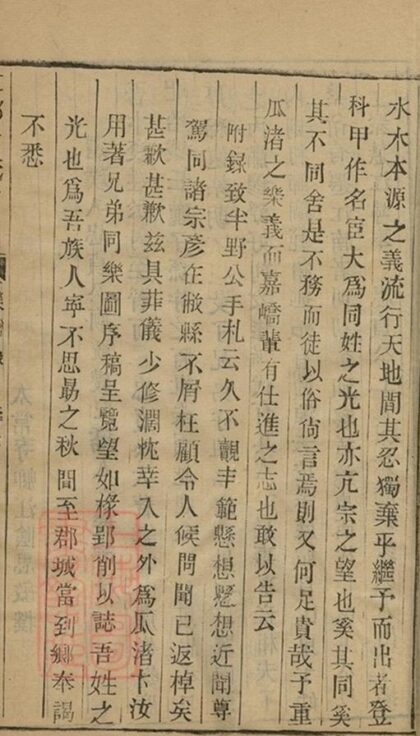 水木本源之義流行天地間其忍獨棄乎繼予而出者登
科甲作名臣大爲同姓之光也亦亢宗之望也奚其同奚
其不同舍是不務而徒以俗尙言焉則又何足貴哉予重
瓜渚之樂義而嘉嶠輩有仕進之志也敢以告云
附錄致半野公手札云久不覿丰範懸想懸想近聞尊
駕同諸宗彥在敝縣不屑枉顧令人候問聞已返棹矣
甚歉甚歉兹具菲儀少修潤枕幸入之外爲瓜渚卞汝
用著兄弟同樂圖序稿呈覽望如椽郢削以誌吾姓之
光也爲吾族人寕不思勗之秋間至郡城當到鄉奉謁
不悉